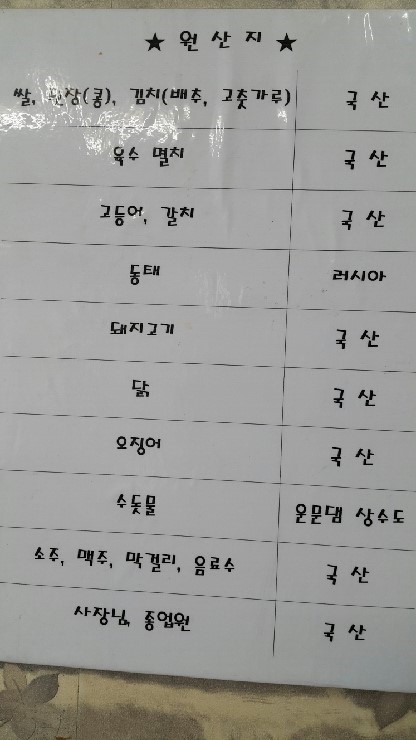 ★ 원 산 지 ★
쌀, 된장(콩), 김치(배추, 고춧가루) 국 산
육수 멸치 국 산
고등어, 갈치 국 산
동태 러시아
돼지고기 국 산
닭 국 산
오징어 국 산
수돗물 운문댐 상수도
소주, 맥주, 막걸리, 음료수 국 산
사장님, 종업원 국 산